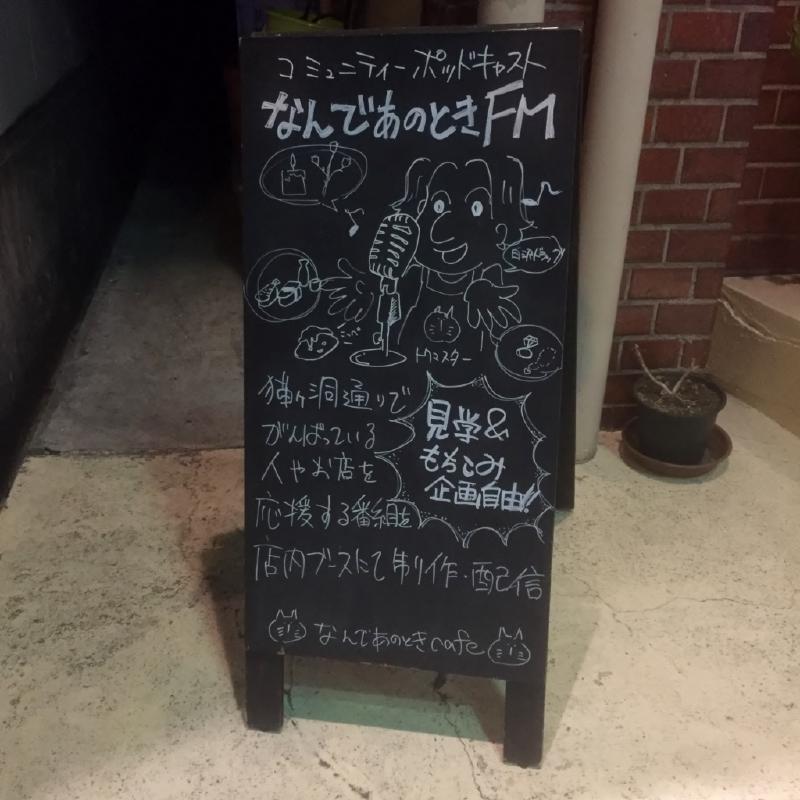 コミュニティーポッドキャスト
なんであのときFM
猫ヶ洞通りで
がんばっている
人やお店を
応援する番組を
見学&
もちこみ
企画自由!!
店内ブースにて制作・配信
なんであのときcafe